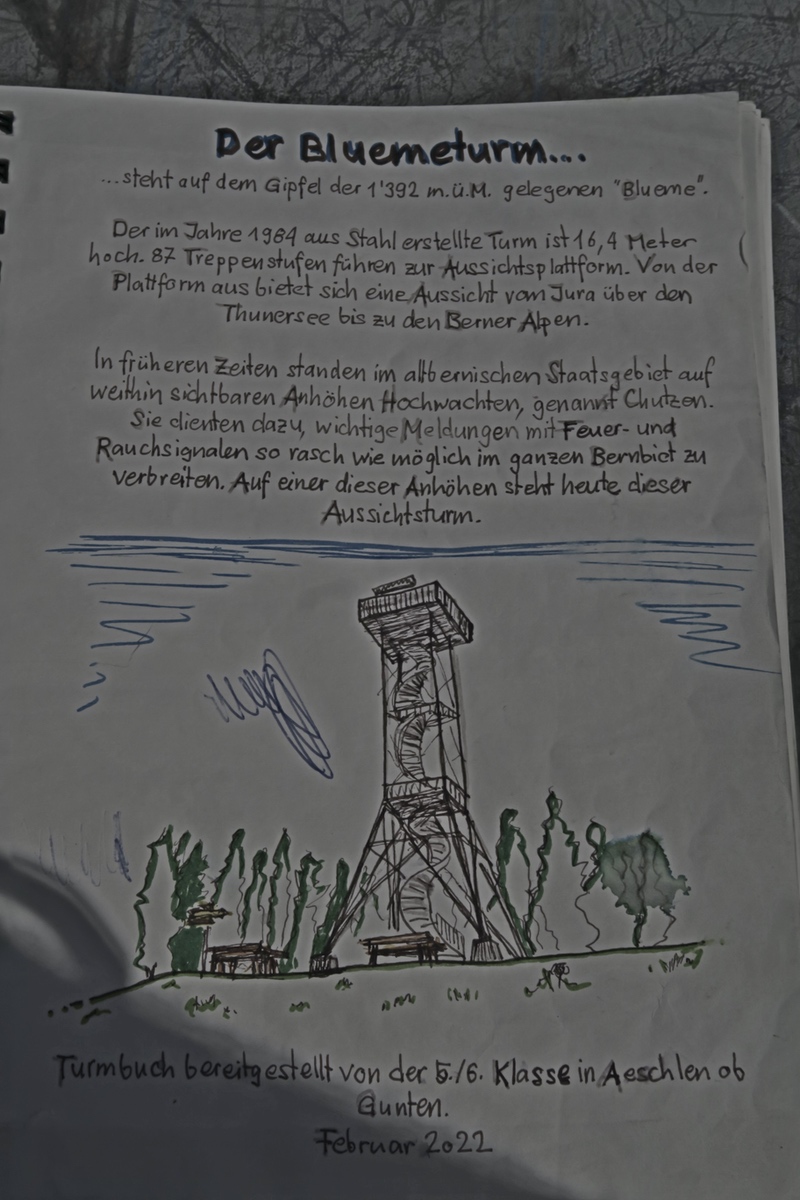 Der Bluemeturm...
...steht auf dem Gipfel der 1'392 m.ü.M. gelegenen "Blueme".
Der im Jahre 1984 aus Stahl erstellte Turm ist 16,4 Meter
hoch. 87 Treppenstufen führen zur Aussichtsplattform. Von der
Plattform aus bietet sich eine Aussicht vom Jura über den
Thunersee bis zu den Berner Alpen.
In früheren Zeiten standen im altbernischen Staatsgebiet auf
weithin sichtbaren Anhöhen Hochwachten, genannt Chutzen.
Sie dienten dazu, wichtige Meldungen mit Feuer- und
Rauchsignalen so rasch wie möglich im ganzen Bernbiet zu
verbreiten. Auf einer dieser Anhöhen steht heute dieser
Aussichtsturm.
Turmbuch bereitgestellt von der 5./6. Klasse in Aeschlen ob
Gunten.
Februar 2022